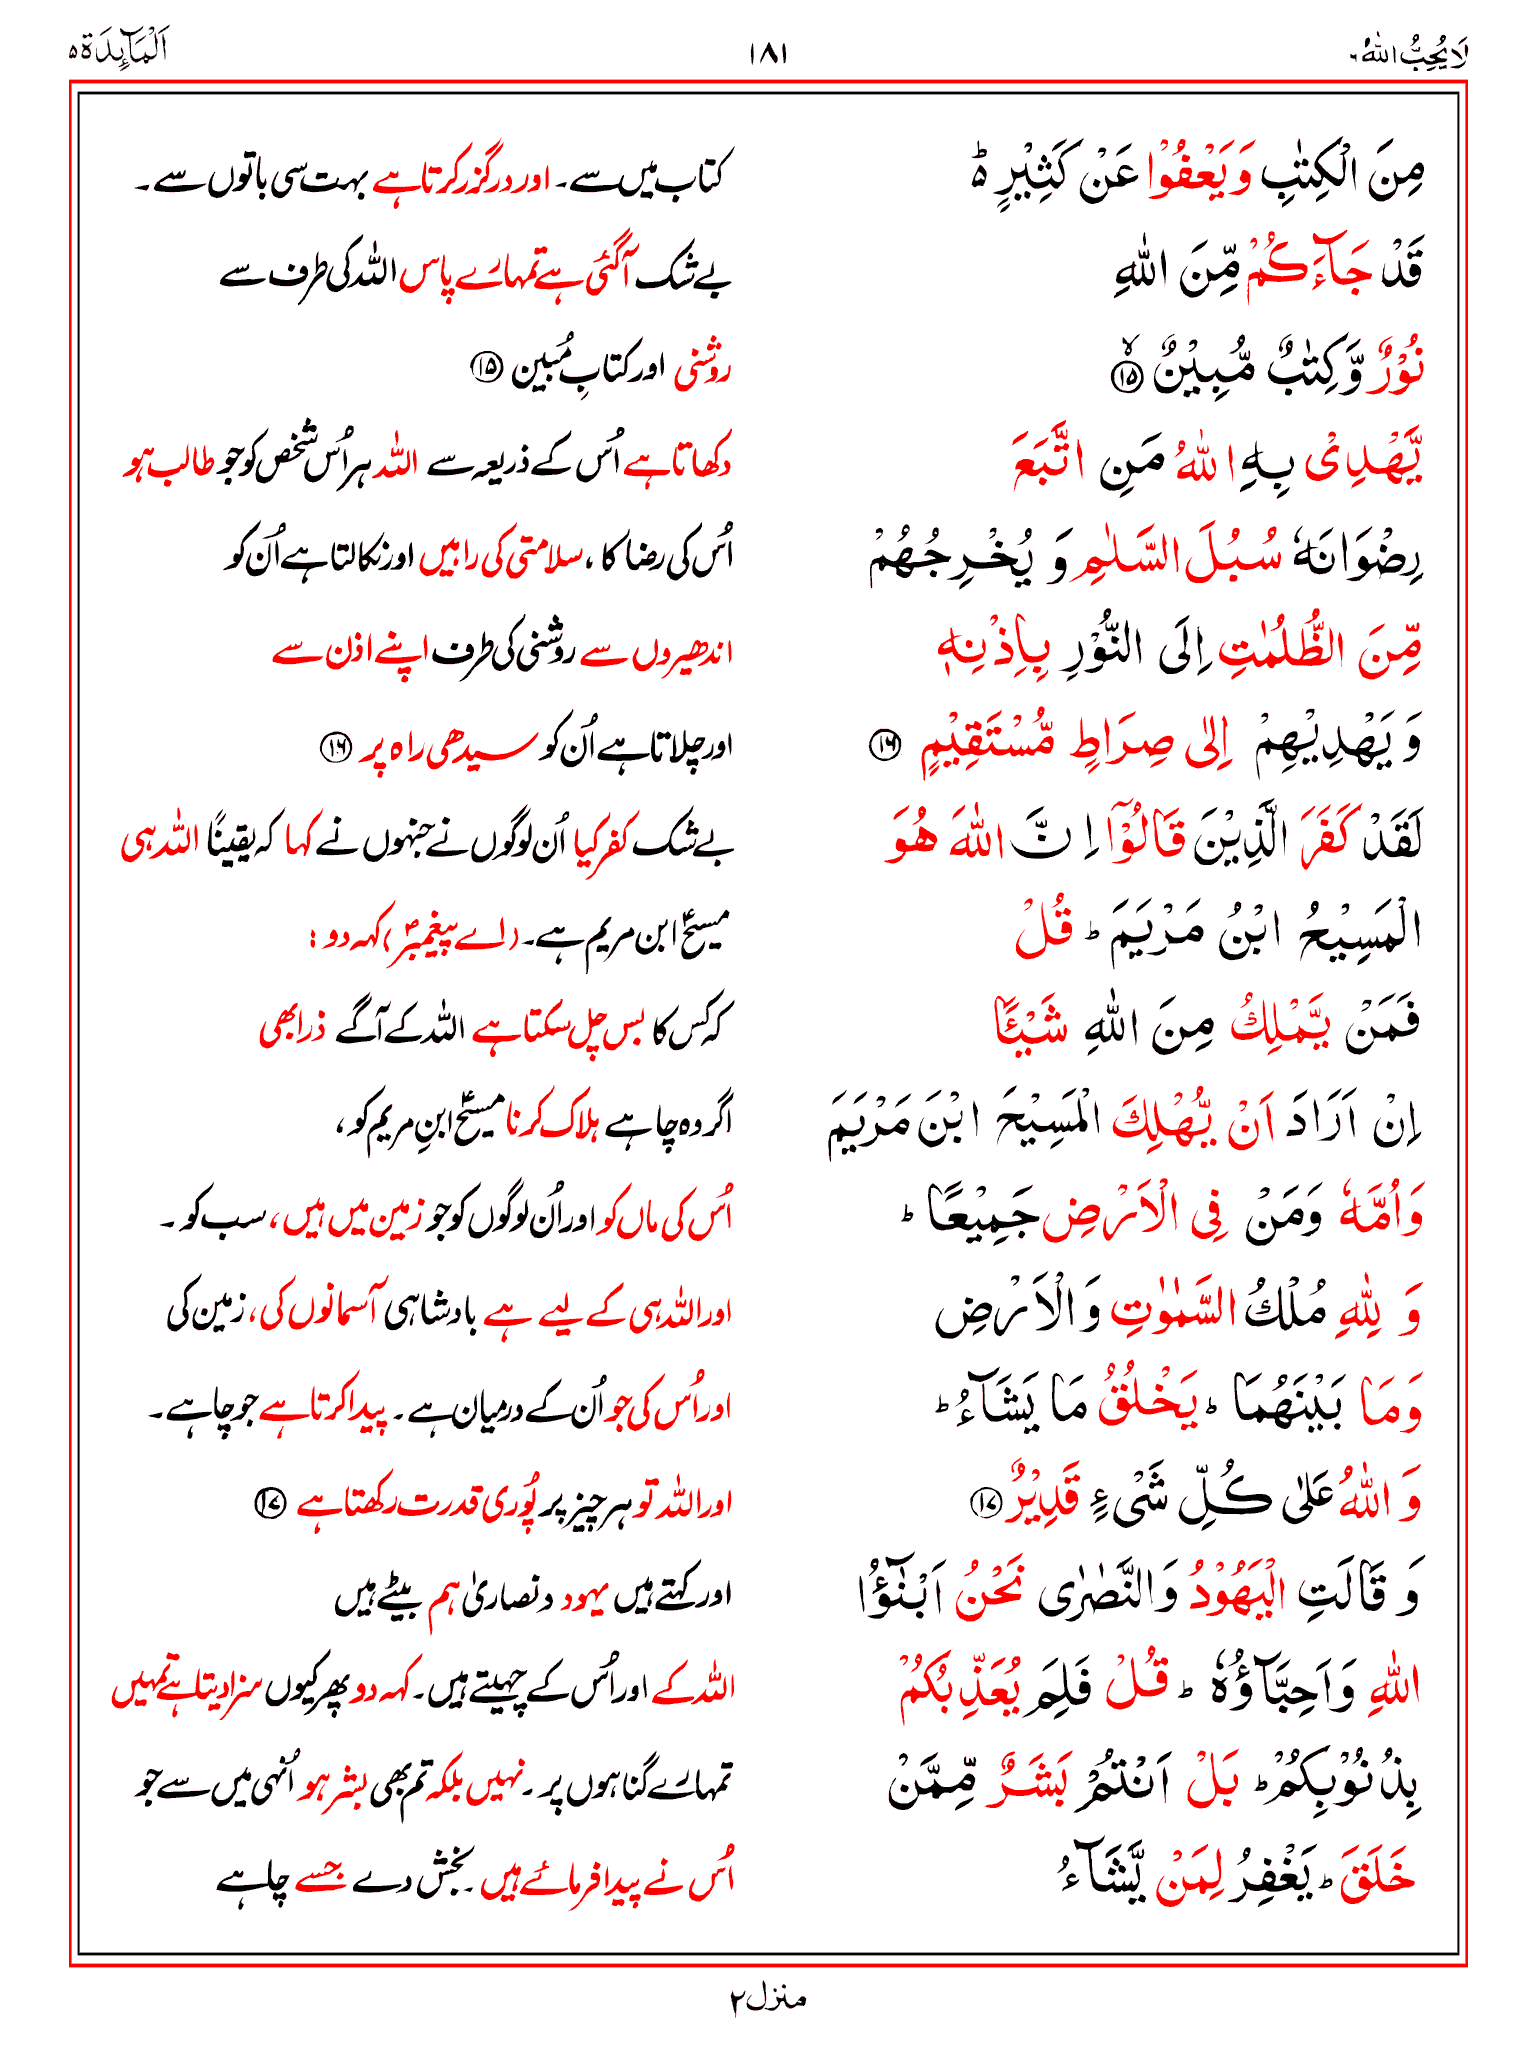 لَا يُحِبُّ اللّٰهُ ٦ ١٨١ اَلْمَآئِدَة ٥
مِنَ الْكِتٰبِ وَيَعْفُوْا عَنْ كَثِيْرٍ ۵ؕ کتاب میں سے۔ اور درگزر کرتا ہے بہت سی باتوں سے۔
قَدْ جَآءَكُمْ مِّنَ اللّٰهِ بے شک آگئی ہے تمہارے پاس اللہ کی طرف سے
نُوْرٌ وَّكِتٰبٌ مُّبِيْنٌ ۙ﴿۱۵﴾ روشنی اور کتابِ مُبین ﴿۱۵﴾
يَّهْدِيْ بِهِ اللّٰهُ مَنِ اتَّبَعَ دکھاتا ہے اُس کے ذریعہ سے اللہ ہر اُس شخص کو جو طالب ہو
رِضْوَانَهٗ سُبُلَ السَّلٰمِ وَ يُخْرِجُهُمْ اُس کی رضا کا، سلامتی کی راہیں اور نکالتا ہے اُن کو
مِّنَ الظُّلُمٰتِ اِلَى النُّوْرِ بِاِذْنِهٖ اندھیروں سے روشنی کی طرف اپنے اذن سے
وَ يَهْدِيْهِمْ اِلٰى صِرَاطٍ مُّسْتَقِيْمٍ ﴿۱۶﴾ اور چلاتا ہے اُن کو سیدھی راہ پر ﴿۱۶﴾
لَقَدْ كَفَرَ الَّذِيْنَ قَالُوْٓا اِنَّ اللّٰهَ هُوَ بے شک کفر کیا اُن لوگوں نے جنہوں نے کہا کہ یقینًا اللہ ہی
الْمَسِيْحُ ابْنُ مَرْيَمَ ؕ قُلْ مسیحؑ ابن مریم ہے۔ (اے پیغمبرؐ) کہہ دو:
فَمَنْ يَّمْلِكُ مِنَ اللّٰهِ شَيْـًٔا کہ کس کا بس چل سکتا ہے اللہ کے آگے ذرا بھی
اِنْ اَرَادَ اَنْ يُّهْلِكَ الْمَسِيْحَ ابْنَ مَرْيَمَ اگر وہ چاہے ہلاک کرنا مسیحؑ ابنِ مریم کو،
وَاُمَّهٗ وَمَنْ فِي الْاَرْضِ جَمِيْعًا ؕ اُس کی ماں کو اور اُن لوگوں کو جو زمین میں ہیں، سب کو۔
وَ لِلّٰهِ مُلْكُ السَّمٰوٰتِ وَ الْاَرْضِ اور اللہ ہی کے لیے ہے بادشاہی آسمانوں کی، زمین کی
وَمَا بَيْنَهُمَا ؕ يَخْلُقُ مَا يَشَآءُ ؕ اور اُس کی جو اُن کے درمیان ہے۔ پیدا کرتا ہے جو چاہے۔
وَ اللّٰهُ عَلٰى كُلِّ شَيْءٍ قَدِيْرٌ ﴿۱۷﴾ اور اللہ تو ہر چیز پر پُوری قدرت رکھتا ہے ﴿۱۷﴾
وَ قَالَتِ الْيَهُوْدُ وَالنَّصٰرٰى نَحْنُ اَبْنٰٓؤُا اور کہتے ہیں یہود و نصاریٰ ہم بیٹے ہیں
اللّٰهِ وَاَحِبَّآؤُهٗ ؕ قُلْ فَلِمَ يُعَذِّبُكُمْ اللہ کے اور اُس کے چہیتے ہیں۔ کہہ دو پھر کیوں سزا دیتا ہے تمہیں
بِذُنُوْبِكُمْ ؕ بَلْ اَنْتُمْ بَشَرٌ مِّمَّنْ تمہارے گناہوں پر۔ نہیں بلکہ تم بھی بشر ہو اُنہی میں سے جو
خَلَقَ ؕ يَغْفِرُ لِمَنْ يَّشَآءُ اُس نے پیدا فرمائے ہیں۔ بخش دے جسے چاہے
منزل ٢